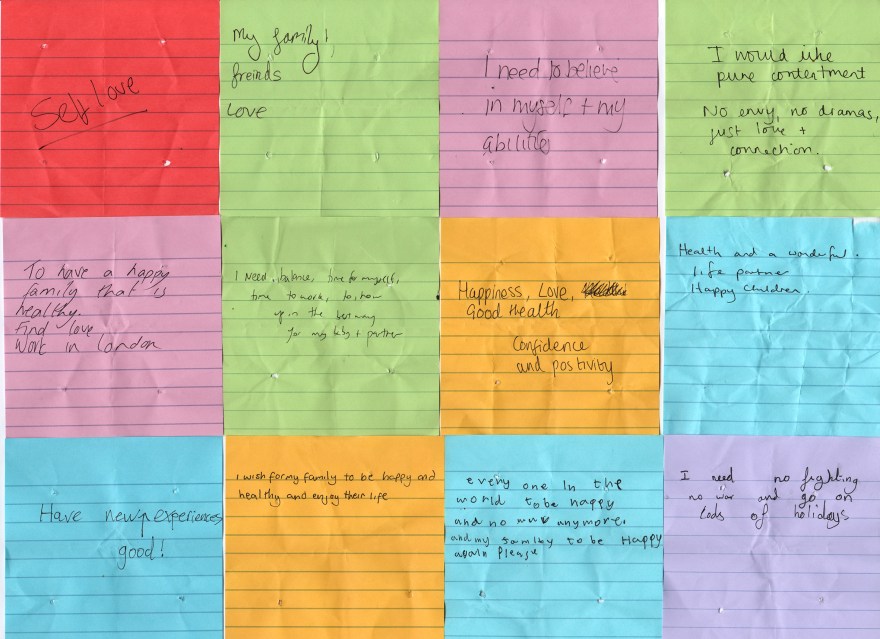 Self love
My family!,
freinds
Love
I need to believe
in myself + my
abilities
I would like
pure contentment
No envy, no dramas,
just love +
connection.
To have a happy
family that is
healthy.
Find love
Work in London
I need balance, time for myself,
time to work, to show
up in the best way
for my baby + partner
Happiness, Love,
Good Health
Confidence
and postivity
Health and a wonderful.
life partner
Happy Children.
Have new experiences
good!
I wish for my family to be happy and
healthy and enjoy their life
every one in the
world to be happy
and no war anymore,
and my family to be Happy
again Please
I need no fighting
no war and go on
lods of holidays